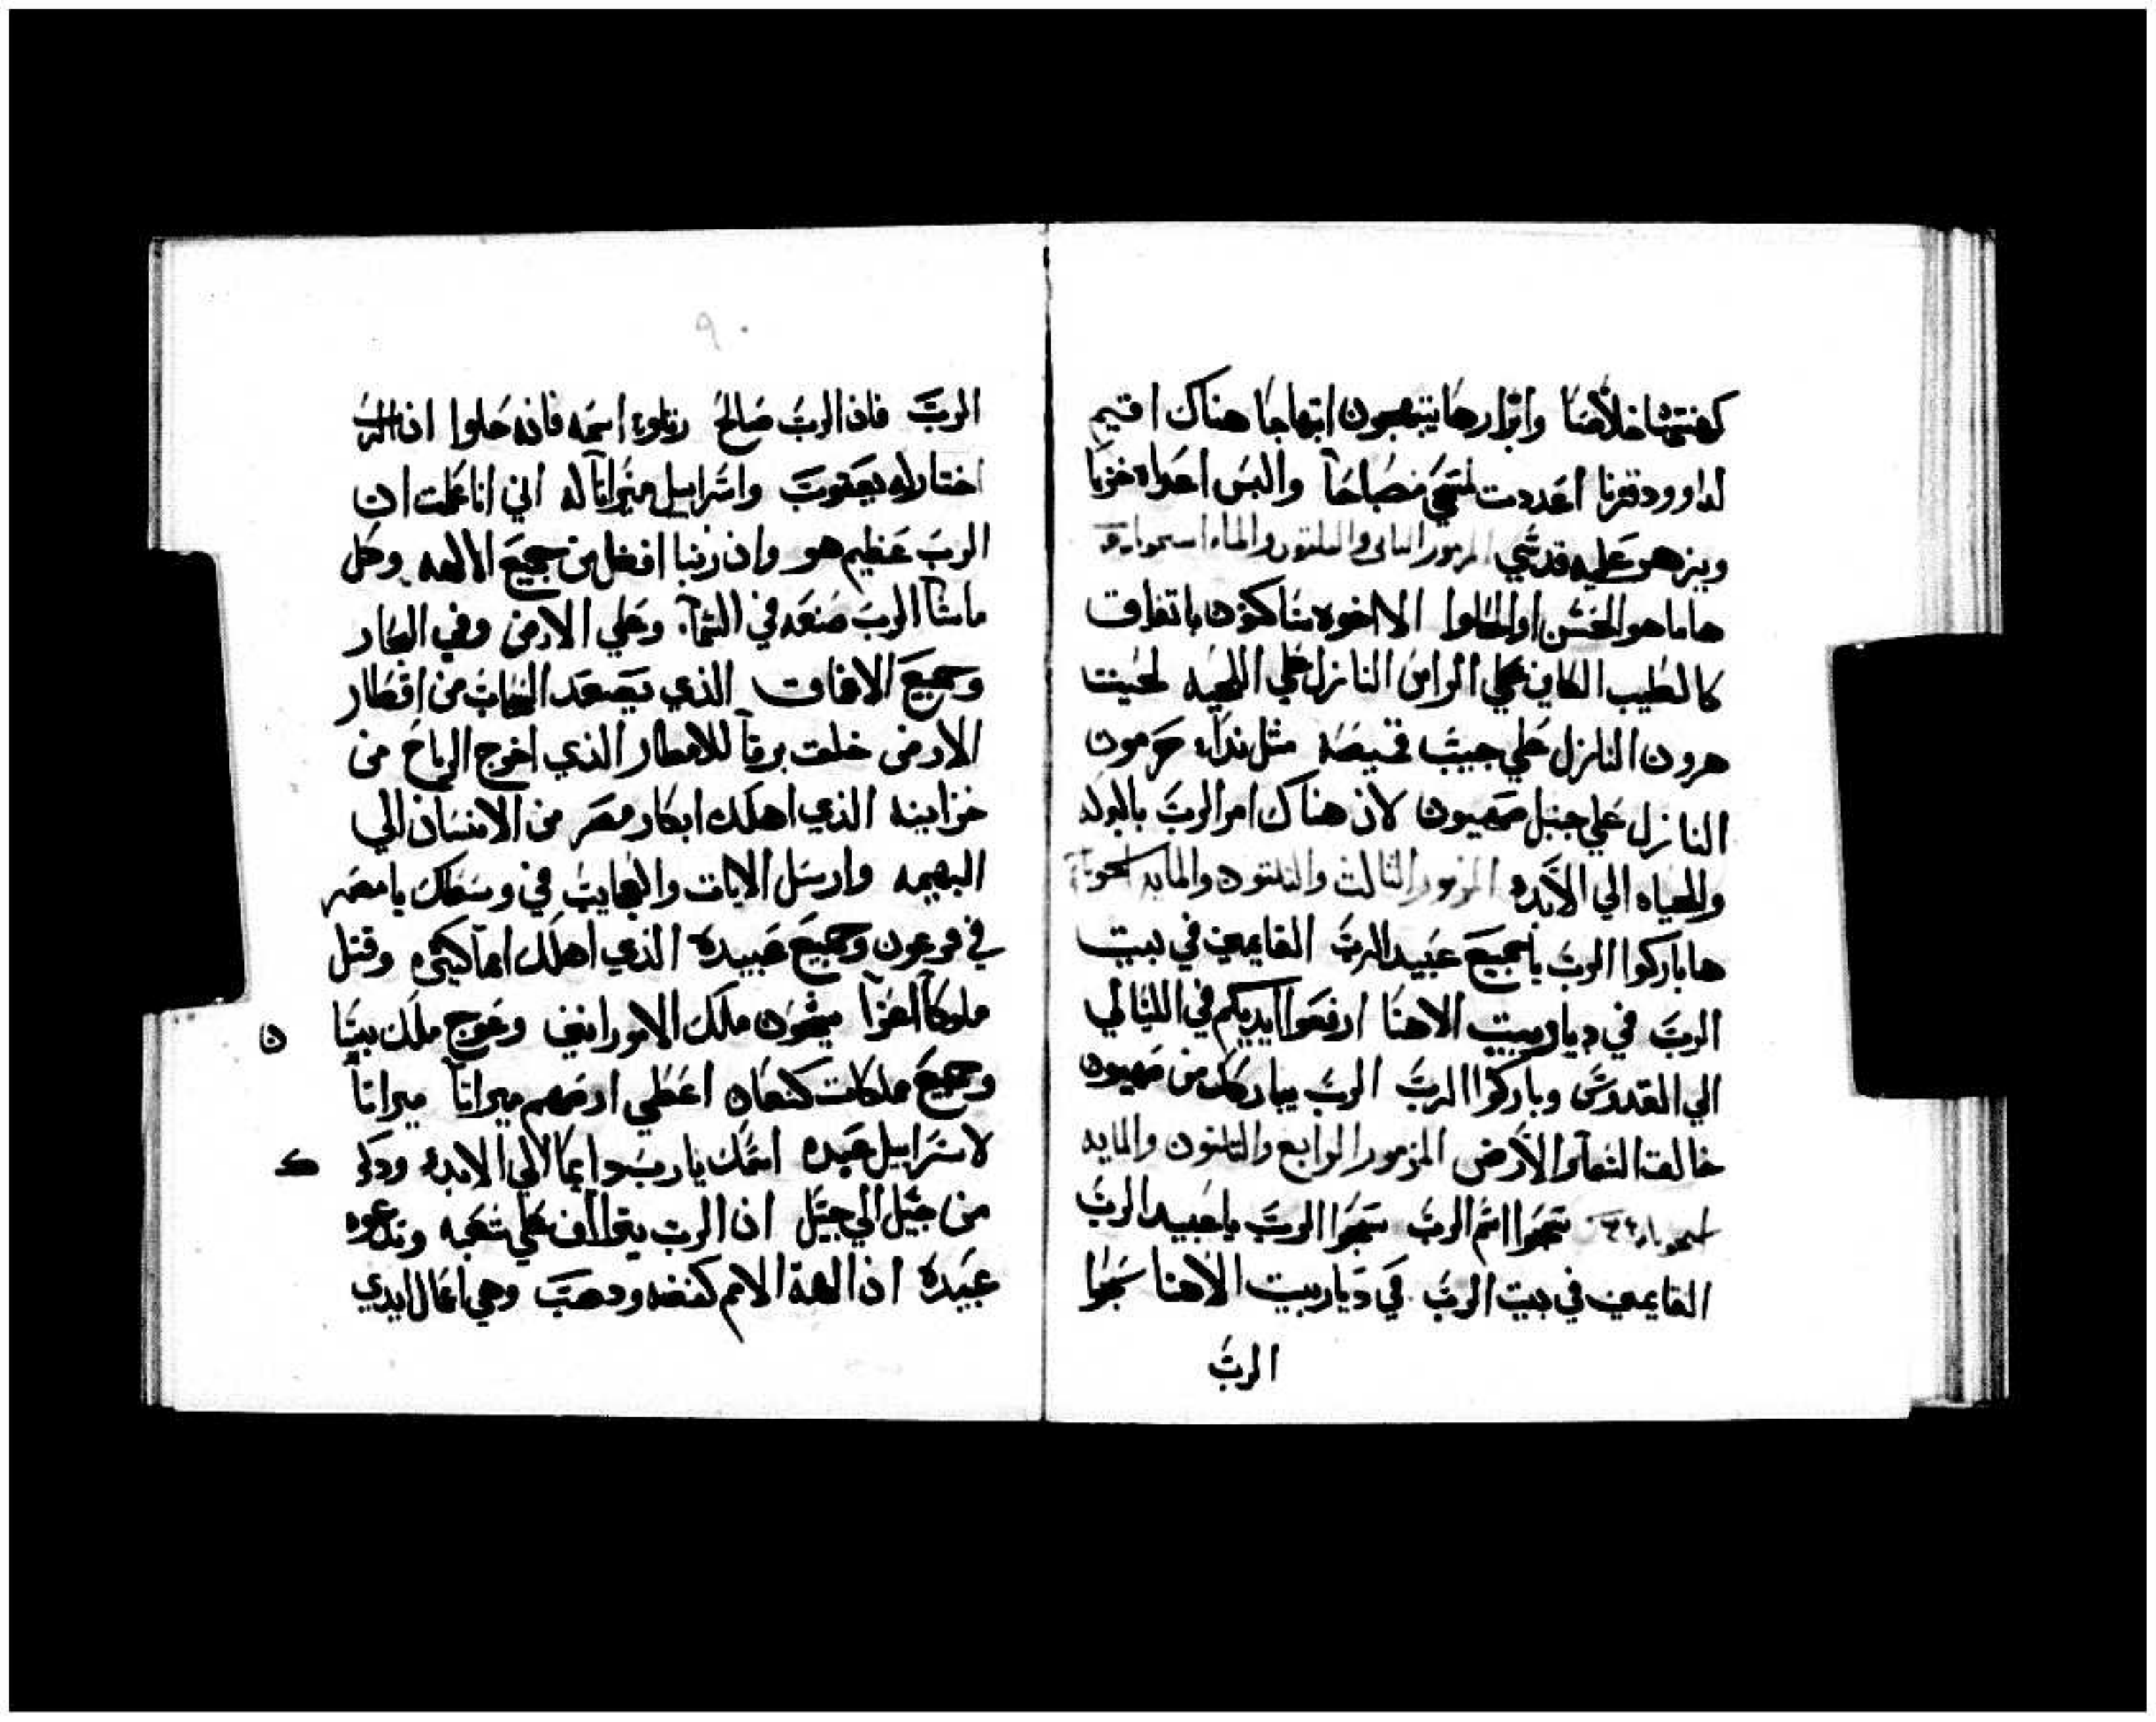 كهنتها خلاصا وابرارها يبتهجون ابتهاجا هناك اقيم
لداوود قرنا اعددت لمسيحي مصباحا والبس اعداه خزيا
ويزهر عليه قدسي المزمور الثاني والثلثون والمايه
ها ما هو الحسن او الحلوا الا اخوه ساكنون باتفاق
كالطيب الكاين علي الراس النازل علي اللحيه لحيت
هرون النازل علي جيب قميصه مثل نداء حرمون
النازل علي جبل صهيون لان هناك امر الرب بالبركه
والحياه الي الابد المزمور الثالث والثلثون والمايه
ها باركوا الرب يا جميع عبيد الرب القايمين في بيت
الرب في ديار بيت الاهنا ارفعوا ايديكم في الليالي
الي القدوس وباركوا الرب الرب يباركك من صهيون
خالق السمآ والارض المزمور الرابع والثلثون والمايه
سبحوا اسم الرب سبحوا الرب يا عبيد الرب
القايمين في بيت الرب في ديار بيت الاهنا سبحوا
الرب
٩٠
الرب فان الرب صالح رتلوا اسمه فانه حلوا ان الرب
اختار له يعقوب واسراييل ميراثا له اني انا علمت ان
الرب عظيم هو وان ربنا افضل من جميع الالهه وكل
ماشآ الرب صنعه في السمآ وعلي الارض وفي البحار
وجميع الافاق الذي يصعد السحاب من اقطار
الارض خلق برقآ للامطار الذي اخرج الرياح من
خزاينه الذي اهلك ابكار مصر من الانسان الي
البهيمه وارسل الايات والعجايب في وسطك يا مصر
في فرعون وجميع عبيده الذي اهلك امما كثيره وقتل
ملوكآ اعزآ سيحون ملك الامورانيين وعوج ملك بيسا
ن
وجميع مملكات كنعان اعطي ارضهم ميراثآ ميراثآ
لاسراييل عبده اسمك يا رب دايما الي الابد وذكر
ك
من جيل الي جيل ان الرب يتراف علي شعبه
عبيده ان الهة الامم كفضه ودهب وهي اعمال ايدي